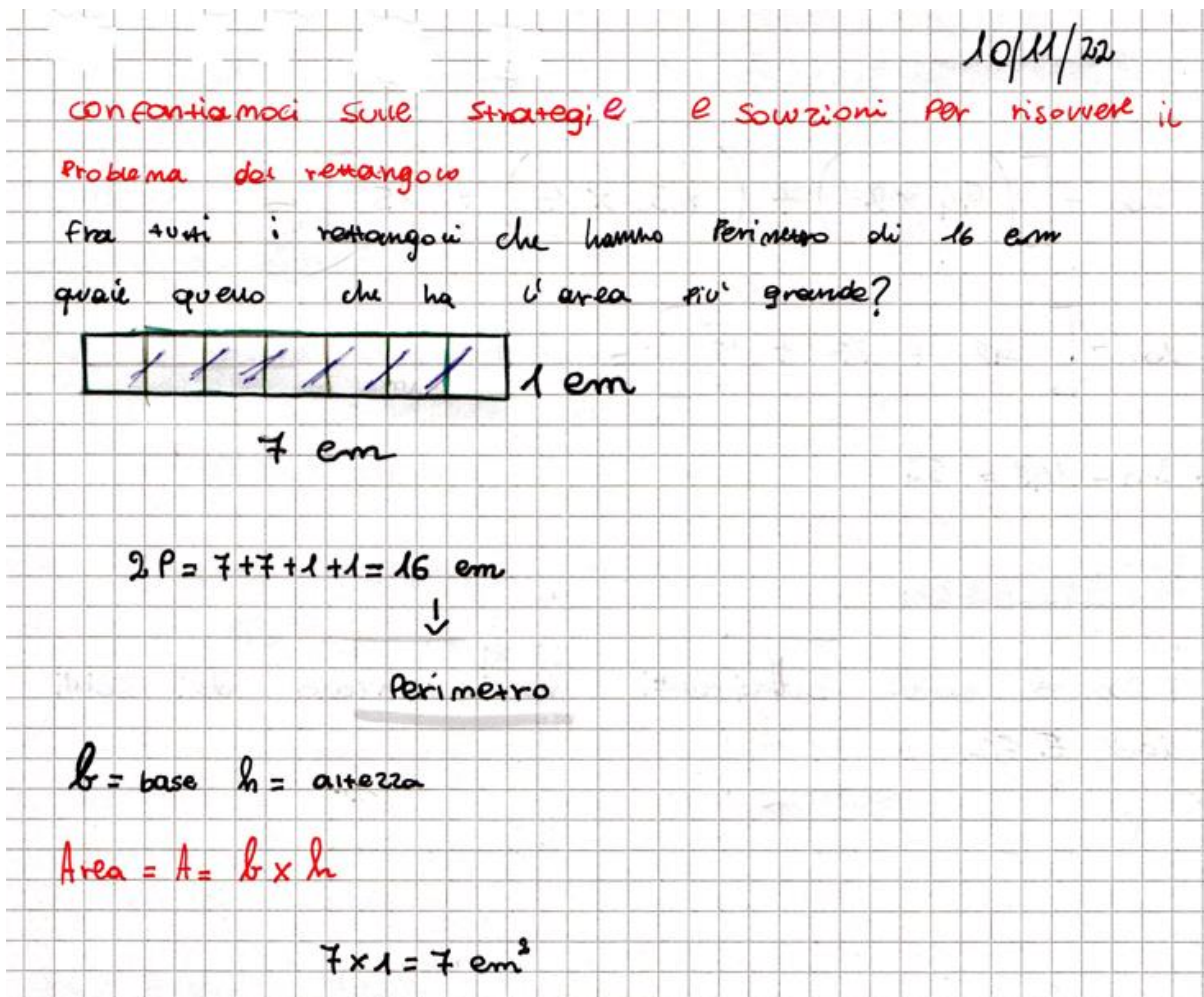 10/11/22
confontiamoci sulle strategie e soluzioni per risolvere il
Problema del rettangolo
fra tutti i rettangoli che hanno Perimetro di 16 cm
quale quello che ha l'area più grande?
1 cm
7 cm
2P = 7+7+1+1 = 16 cm
↓
Perimetro
b = base h = altezza
Area = A = b x h
7 x 1 = 7 cm²